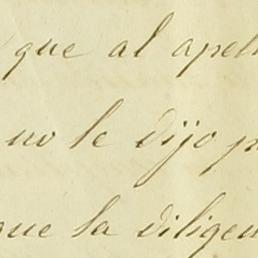 que al apell
no le dijo p
que la diligen